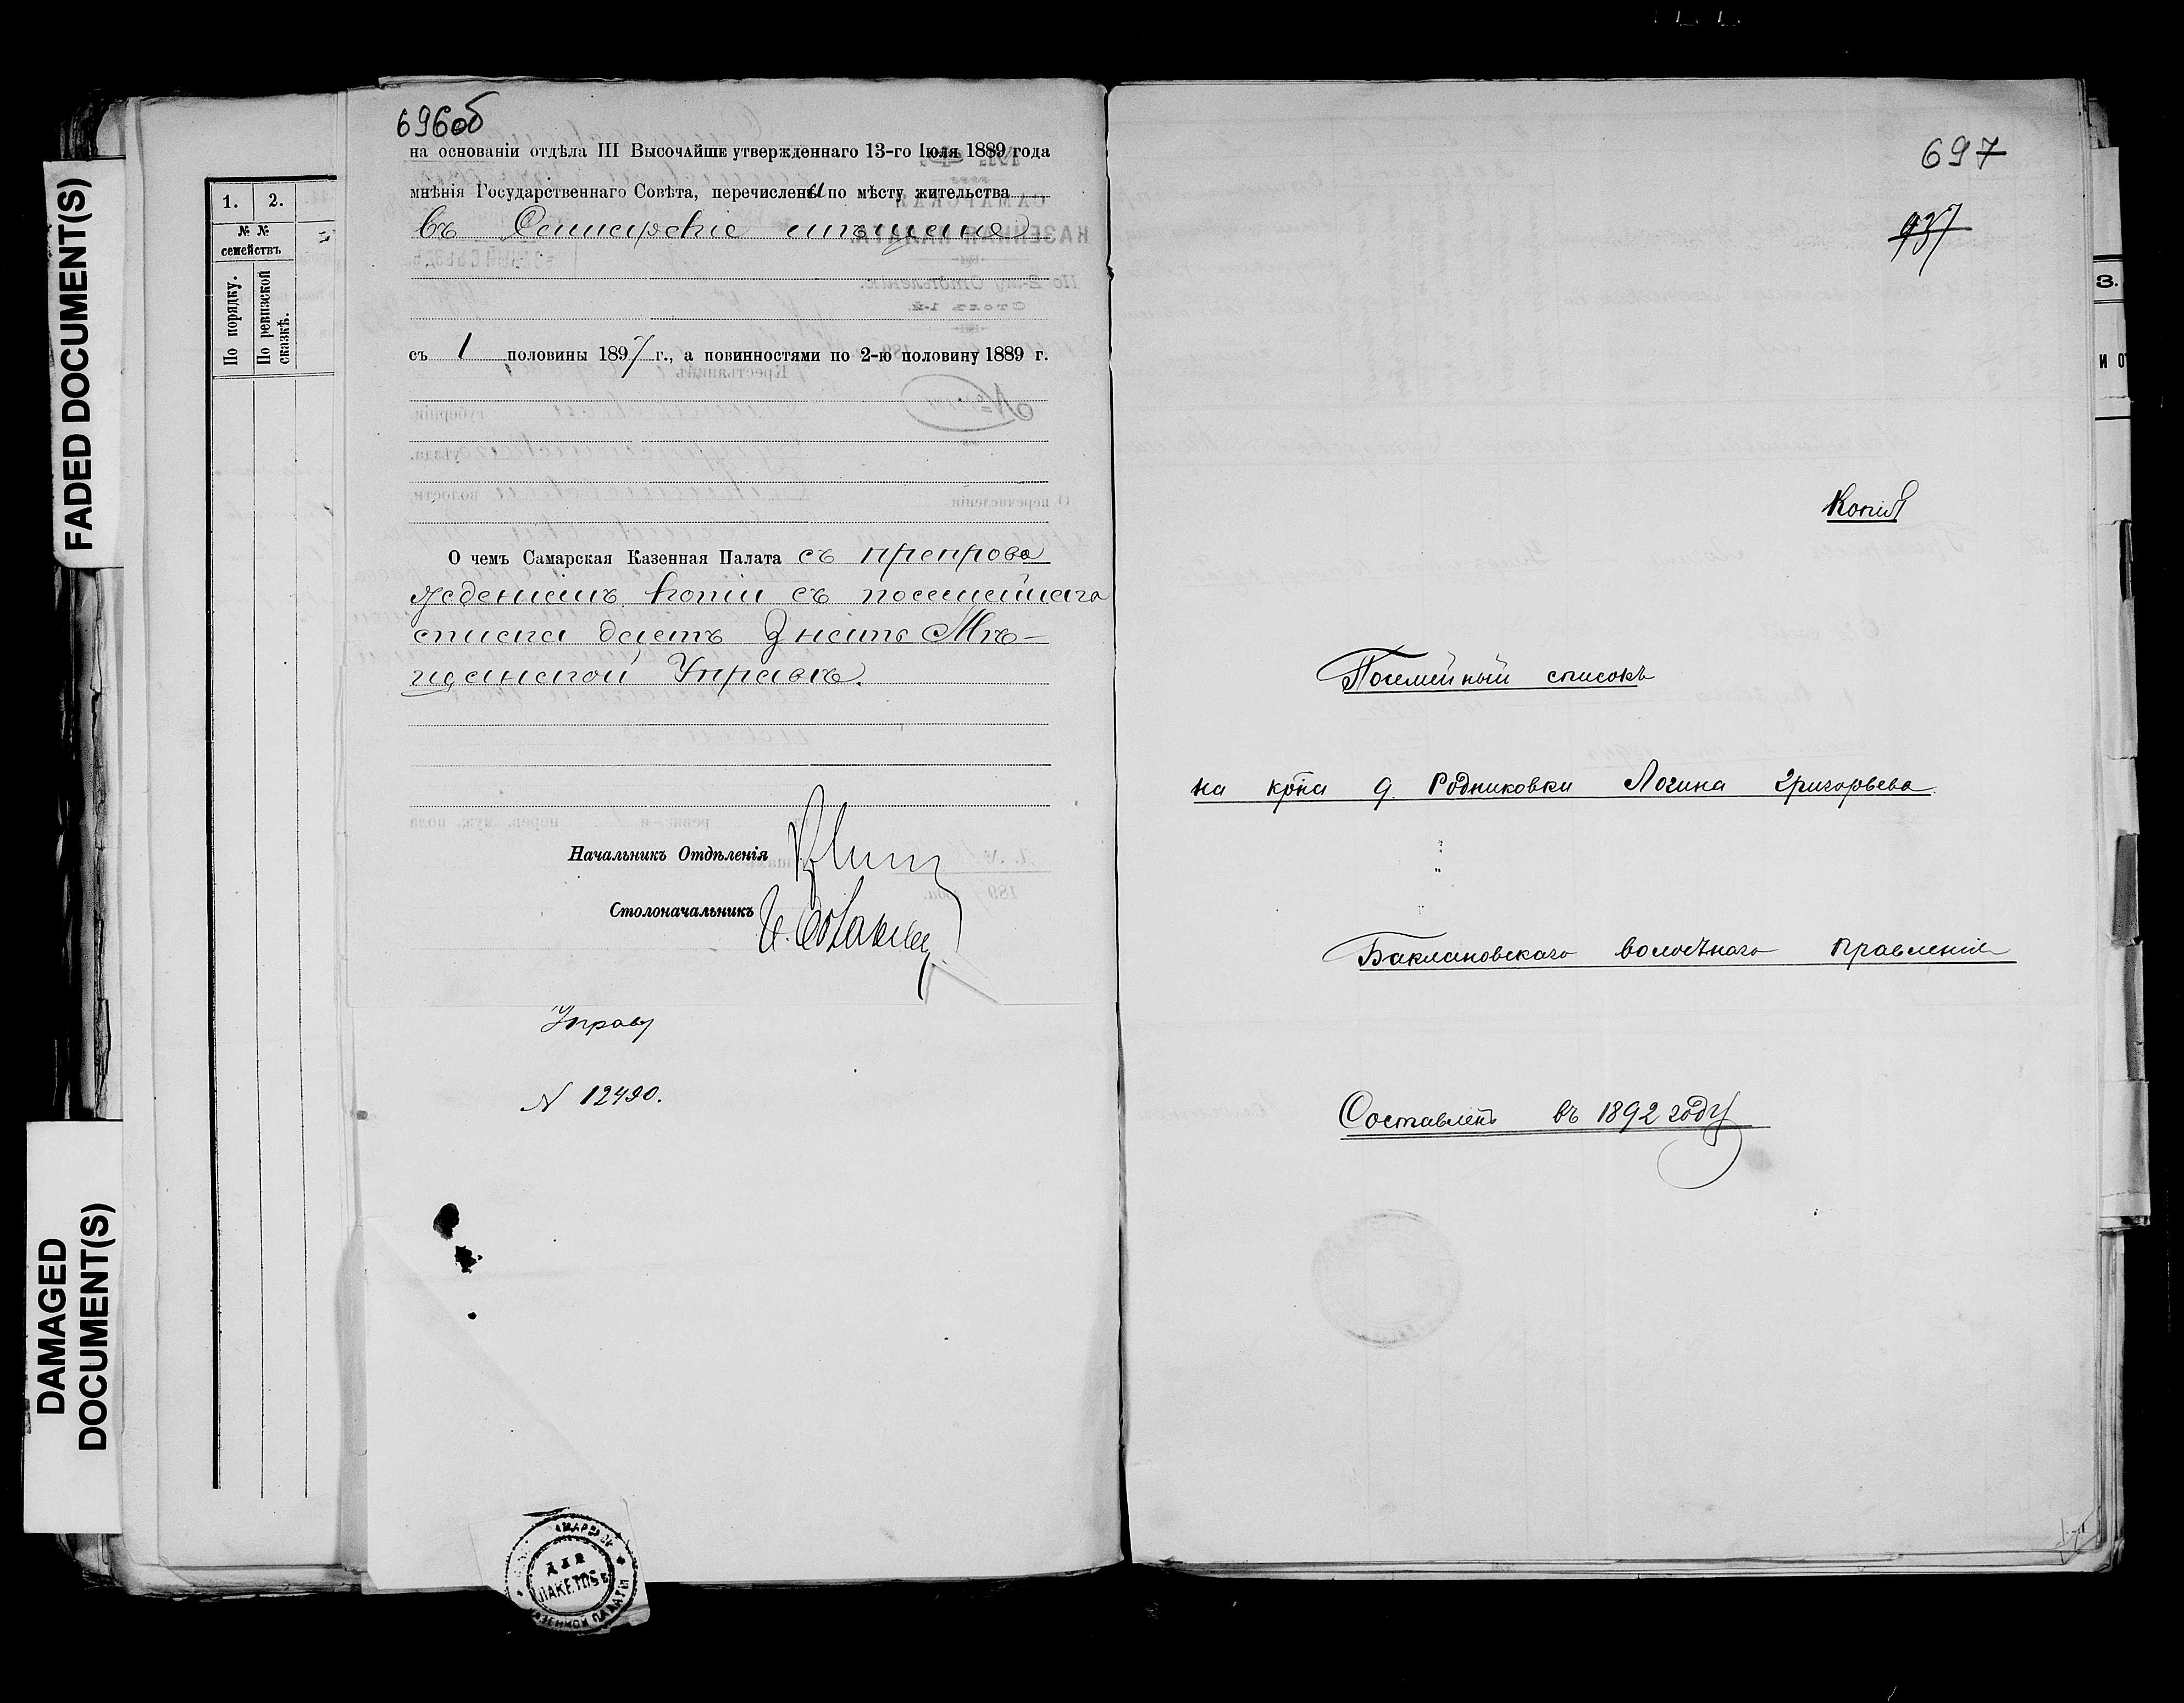 FADED DOCUMENT(S)
DAMAGED
DOCUMENT(S)
1. 2.
№ №
семействъ
По порядку.
По ревизской
сказкѣ.
696об
на основаніи отдѣла III Высочайше утвержденнаго 13-го Іюля 1889 года
мнѣнія Государственнаго Совѣта, перечислены по мѣсту жительства
въ Самарскіе мѣщане
съ 1 половины 1897 г., а повинностями по 2-ю половину 1889 г.
О чемъ Самарская Казенная Палата съ препрово
жденіемъ копіи съ посемейнаго
списка даетъ знать Мѣ-
щанской Управѣ.
Начальникъ Отдѣленія
Столоначальникъ
Управу
N 12490.
ПАКЕТОВЪ
697
937
Копія
Посемейный списокъ
на кр͞на д. Родниковки Логина Григорьева.
Баклановскаго волостнаго правленія
Составленъ въ 1892 году
3.
И О